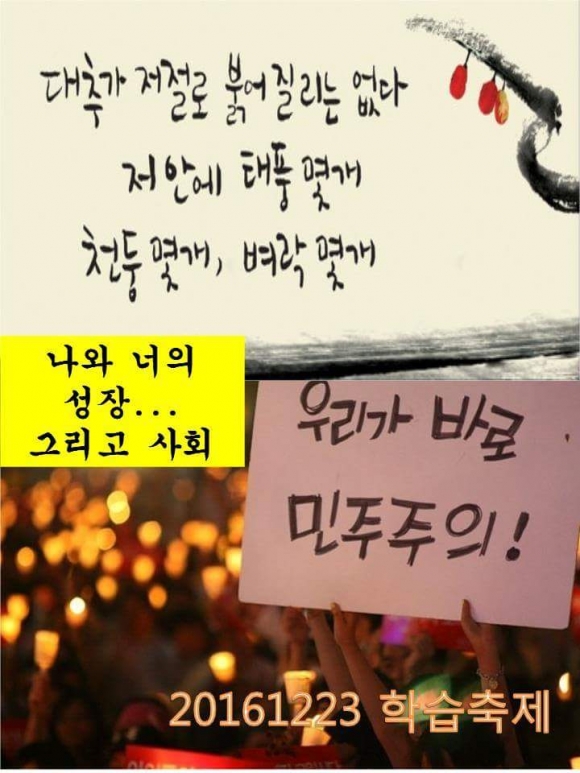 대추가 저절로 붉어질리는 없다
저안에 태풍 몇개
천둥 몇개, 벼락 몇개
나와 너의
성장...
그리고 사회
우리가 바로
민주주의!
20161223 학습축제